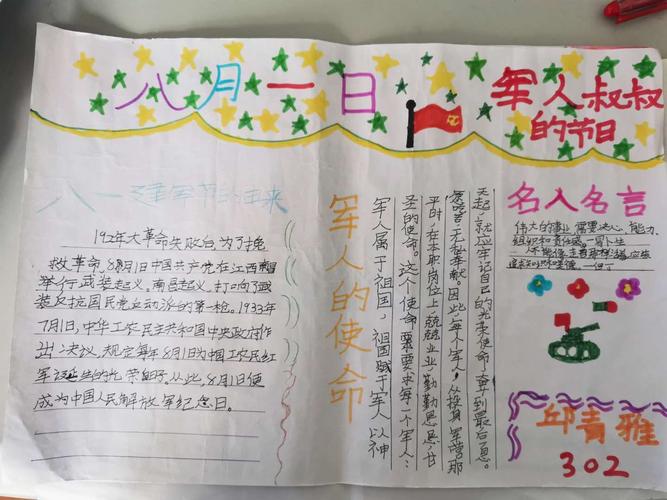 八月一日
军人叔叔
的节日
八一建军节的由来
192年大革命失败后,为了挽
救革命,8月1日中国共产党在江西南昌
举行武装起义。南昌起义,打响了武
装反抗国民党反动派的第一枪。1933年
7月1日,中华工农民主共和国中央政府作
出决议,规定每年8月1日为中国工农民红
军诞生的光荣,从此,8月1日便
成为中国人民解放军纪念日。
军人的使命
军人属于祖国,祖国赋于军人以神
圣的使命。这个使命需要求每一个军人:
平时,在本职岗位上,兢兢业业,勤勤恳恳,甘
愿吃苦,无私奉献。因此,每个军人,从投身军营那
天起,就应牢记自己的光荣使命,奋斗到最后一息。
名人名言
伟大的事业,需要决心,能力,
组织和责任感。—易卜生
人不能像走兽那样活着,应该
追求知识和美德 —但丁
邱青雅
302